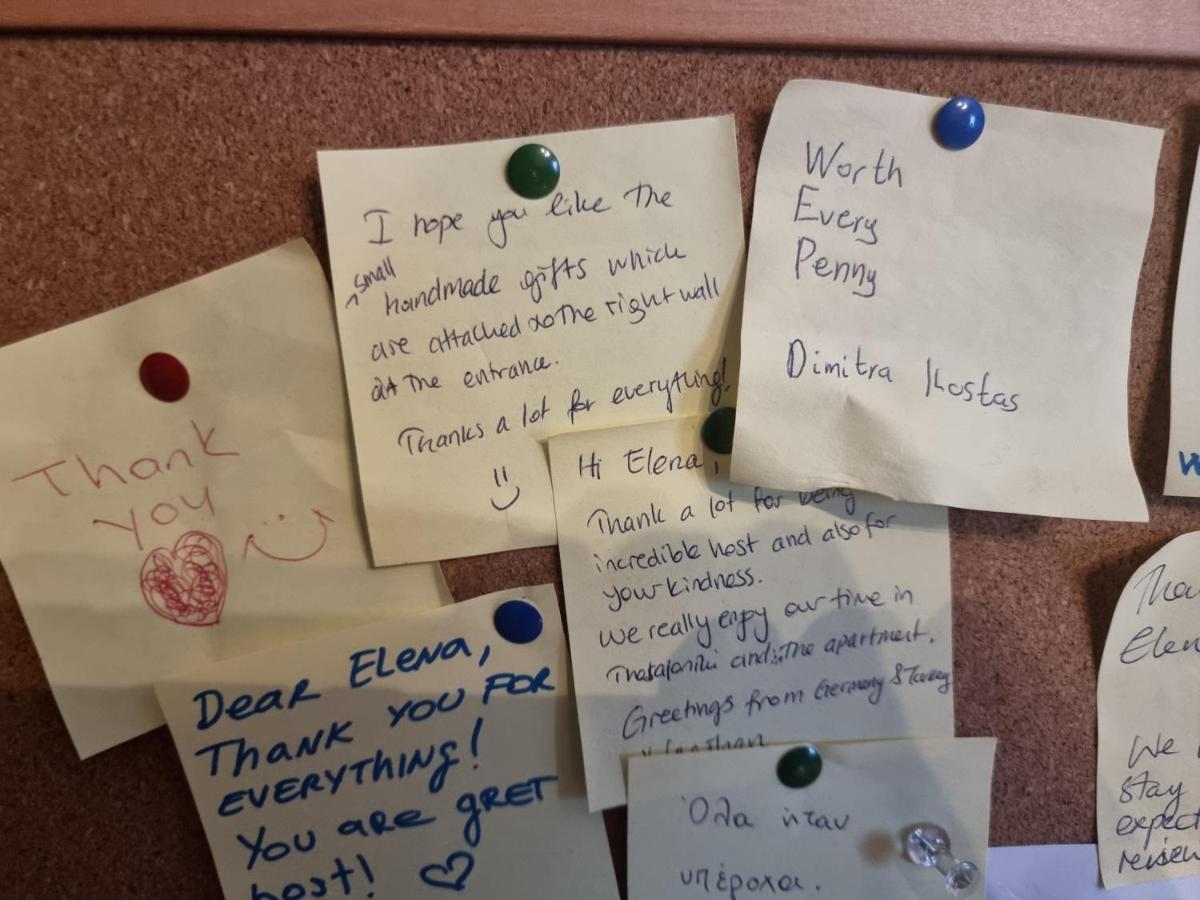 Thank
you
I hope you like the
small
handmade gifts which
are attached to the right wall
at the entrance.
Thanks a lot for everything!
Worth
Every
Penny
Dimitra Kostas
Hi Elena,
Thank a lot for being
incredible host and also for
your kindness.
We really enjoy our time in
and the apartment.
Greetings from Germany & Turkey
Dear Elena,
Thank you for
everything!
You are gret
host!
Όλα ήταν
υπέροχα.
W
Elen
We
stay
expect
review